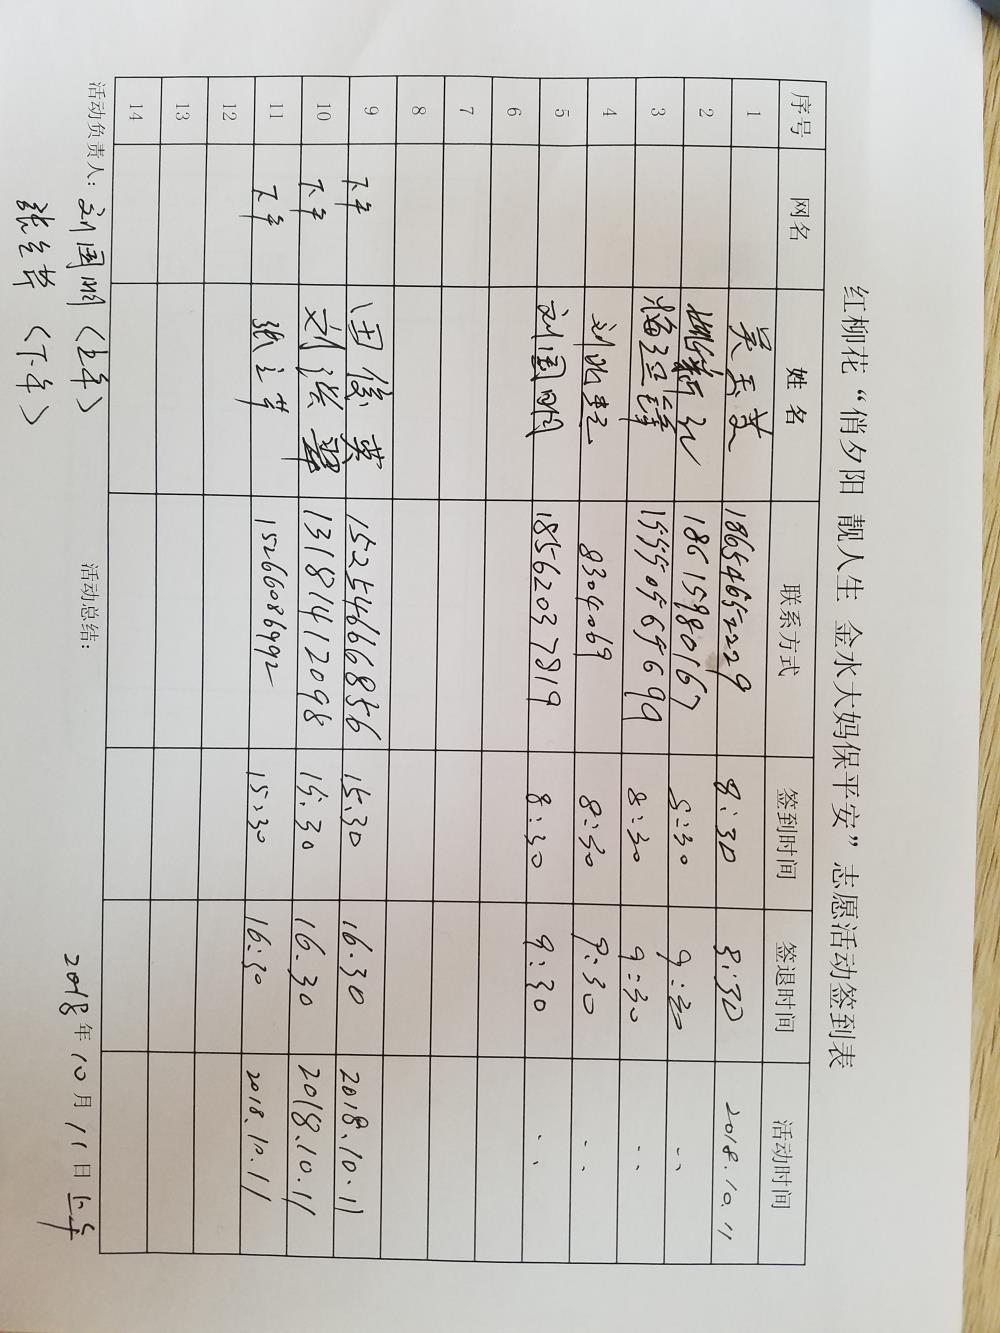 红柳花“俏夕阳 靓人生 金水大妈保平安”志愿活动签到表
序号 网名 姓名 联系方式 签到时间 签退时间 活动时间
1 吴玉英 18654652229 8:30 8:30 2018.10.11
2 18615980167 8:30 9:30 ..
3 15550565699 8:30 9:30 ..
4 8304069 8:30 9:30 ..
5 刘国明 18562037819 8:30 9:30 ..
6
7
8
9 下午 田俊英 15254666856 15:30 16.30 2018.10.11
10 下午 刘洪翠 13181412098 15:30 16.30 2018.10.11
11 下午 张立华 15266086992 15:30 16:30 2018.10.11
12
13
14
活动负责人: 刘国明(上午) 活动总结: 2018年10月11日 上午
张立华(下午)